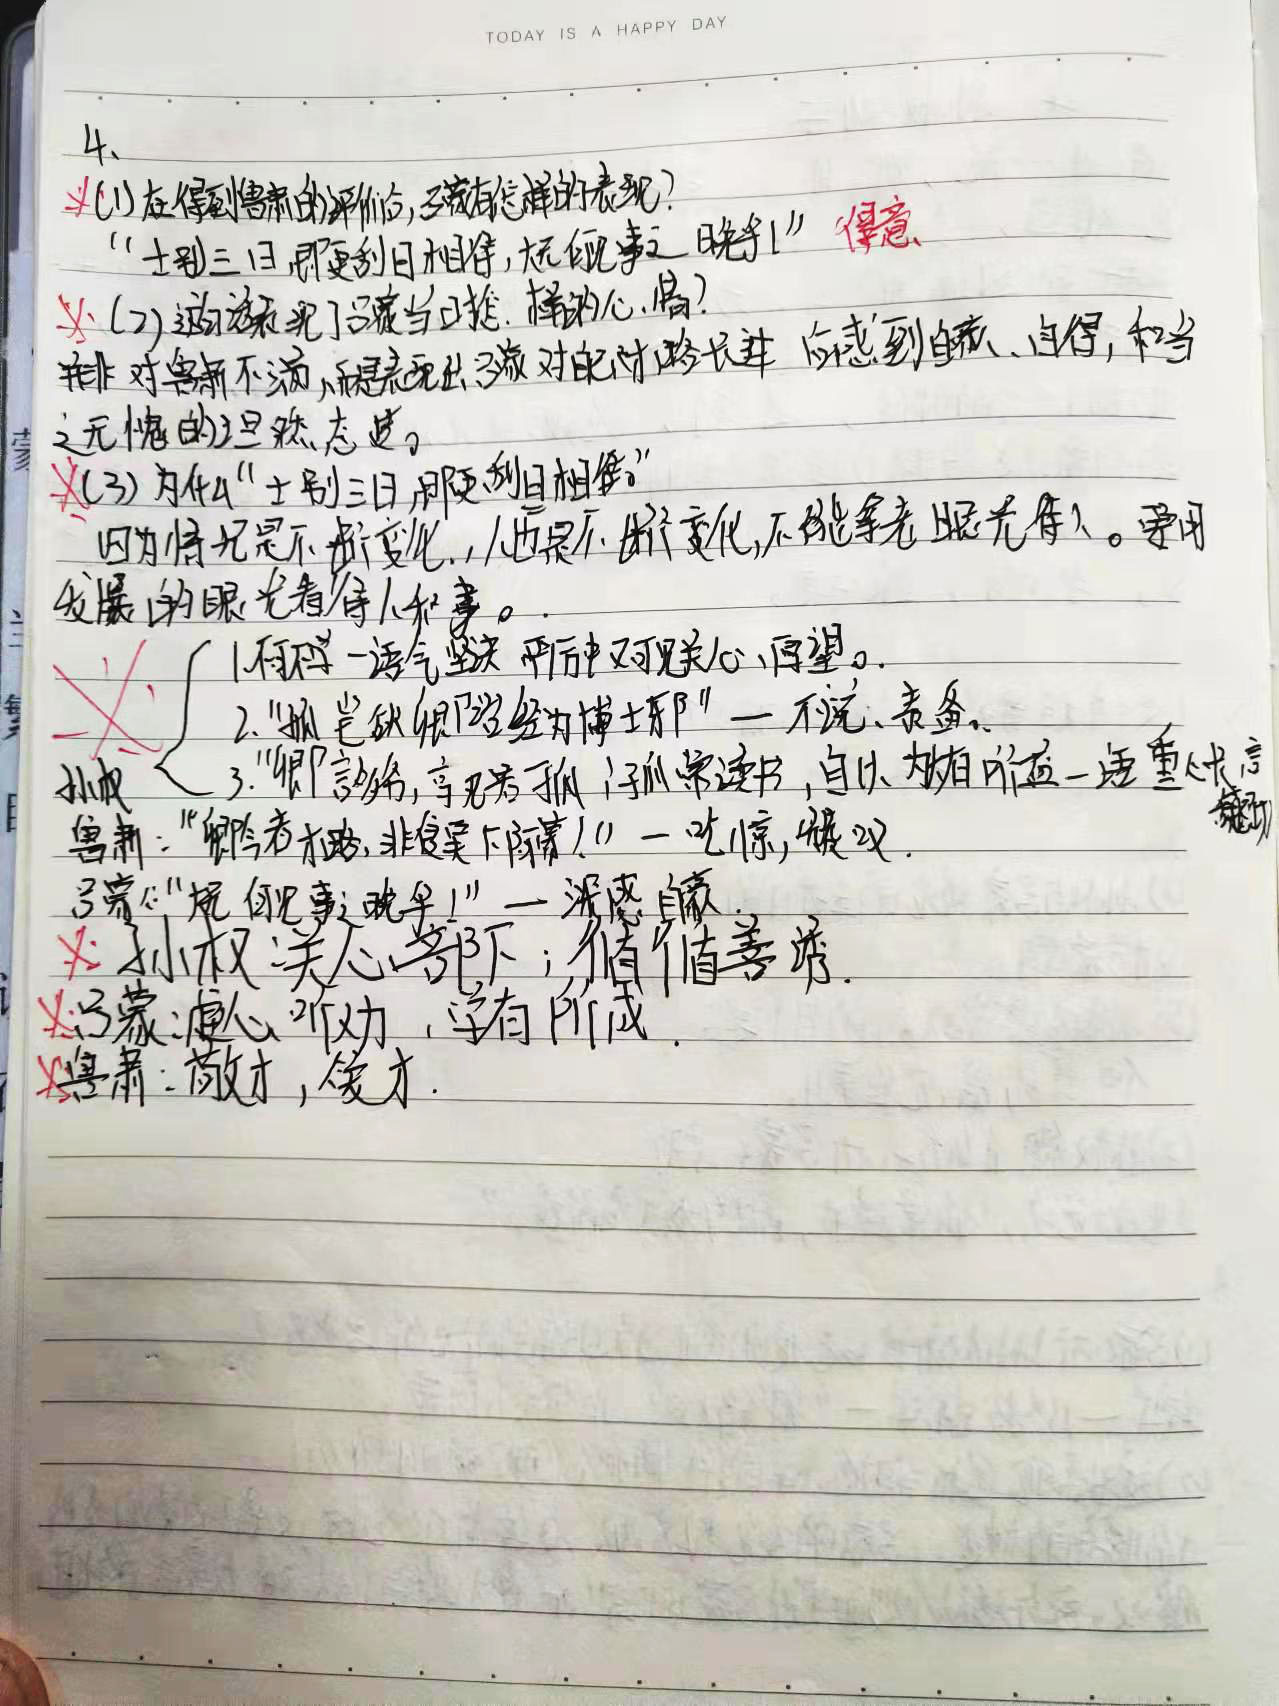 TODAY IS A HAPPY DAY
4、
(1)在得到鲁肃的评价后,吕蒙有怎样的表现?
“士别三日,即更刮目相待,大兄何见事之晚乎!” 得意
(2)这句话表现了吕蒙当时怎样的心情?
并非对鲁肃不满,而是表现出吕蒙对自己才略长进后感到自豪、自得,和当
之无愧的坦然态度。
(3)为什么“士别三日,即更刮目相待”
因为情况是不断变化,人也是不断变化,不能拿老眼光看人。要用
发展的眼光看待人和事。
1. 语气坚决 严厉中可见关心、厚望。
2.“孤岂欲卿治经为博士邪” — 不悦、责备。
孙权 3.“卿言多务,孰若孤 孤常读书,自以为大有所益 — 语重心长 言
鲁肃:“卿今者才略,非复吴下阿蒙!” — 吃惊,
吕蒙:“大兄何见事之晚乎!” — 深感自豪
孙权:关心部下;循循善诱.
吕蒙:虚心听劝,学有所成.
鲁肃:敬才,爱才.